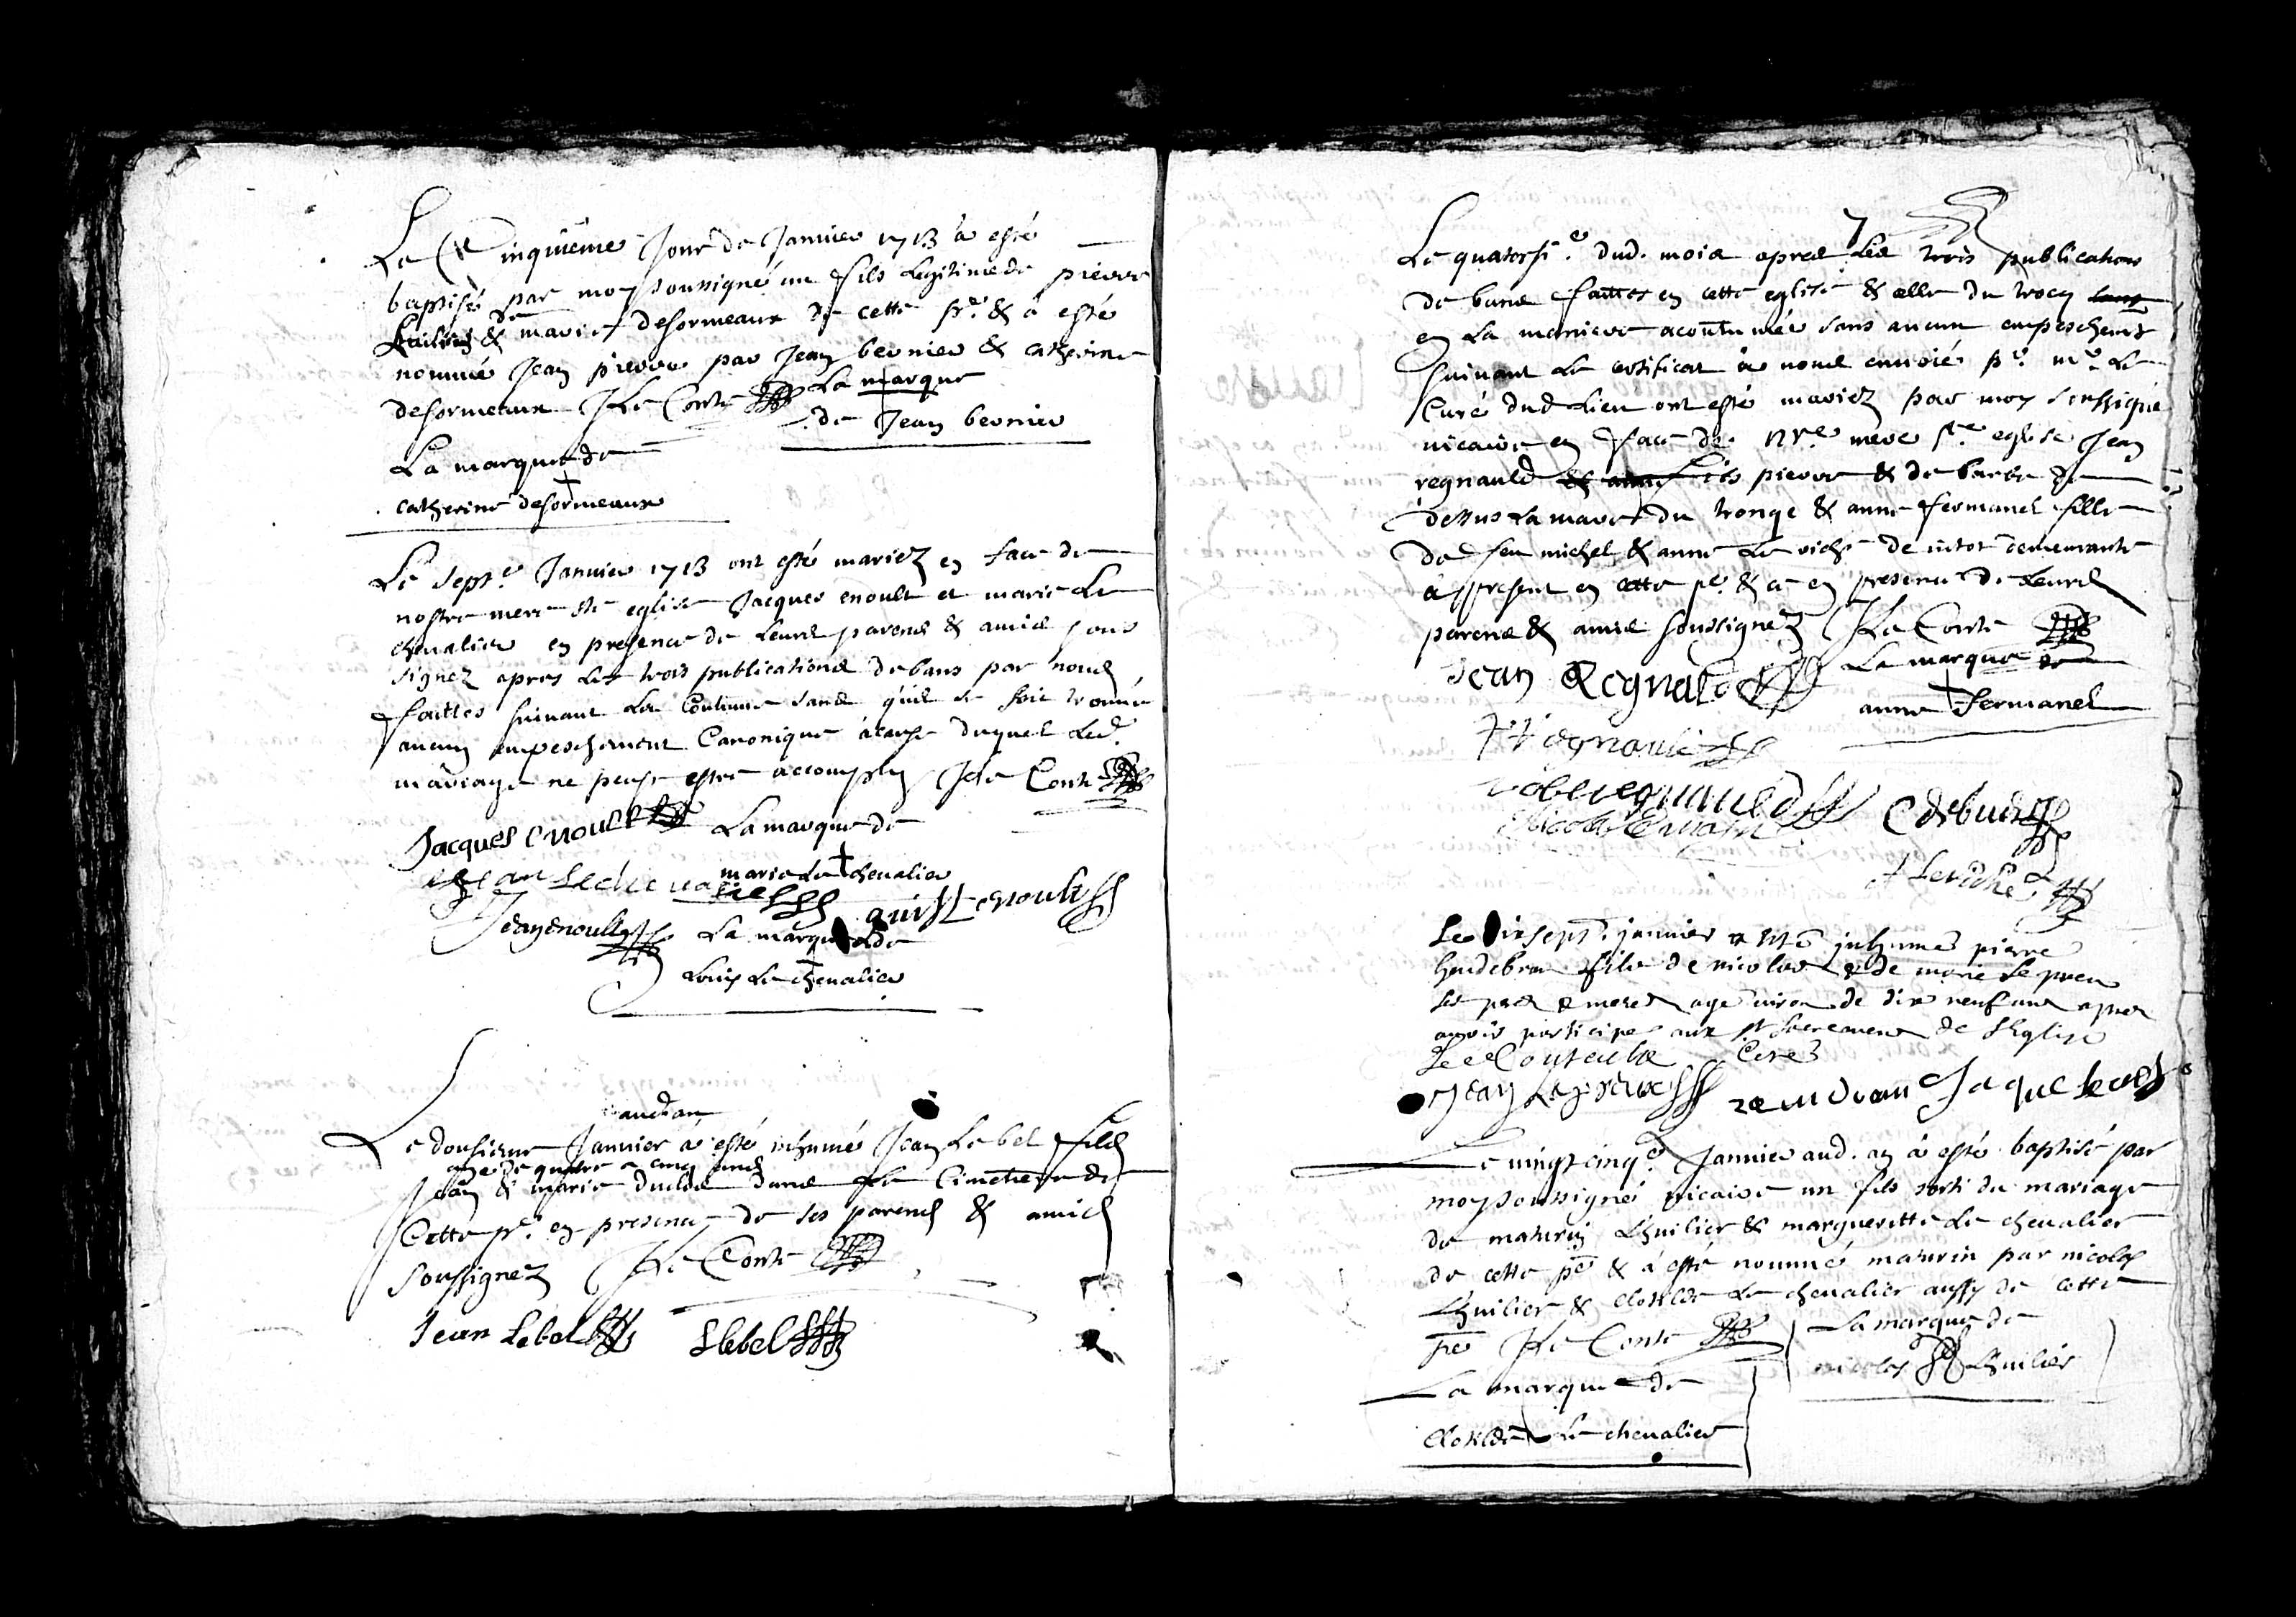 Le Cinquieme Jour de Janvier 1713 a esté
baptisé par moy soussigné un fils legitime de pierre
& de marie desormeaux de cette pe. & a esté
nommé Jean pierre par Jean bernier & catherine
desormeaux JLe Conte La marque
de Jean bernier
La marque de
catherine desormeaux
Le sept.e Janvier 1713 ont esté mariez en face de
nostre mere ste eglise Jacques enoult et marie Le
chevalier en presence de leurs parens & amis sous
signez apres les trois publications de bans par nous
faittes suivant la Coutume sans quil se soit trouvé
aucun empeschement Canonique a cause duquel led.
mariage ne peust estre accomply JLe Conte
Jacques enoult La marque de
marie Le chevalier
Jean Lechevalier
Jean enoult La marque de enoult
Louis Le chevalier
audan
Le dousieme Janvier a esté inhumé Jean Lebel fils
age de quatre a cinq ans
Jean & marie duclos dans Le Cimetiere de
Cette pe. en presence de ses parens & amis
soussignez JLe Conte
Jean Lebel Slebel
7
Le quatorsi.e dud. mois apres Les trois publications
de bans faittes en cette eglise & celle du trocq
en La maniere acoutumée sans aucun empeschemt
suivant Le certificat a nous envoié pr. mr. Le
Curé dud Lieu ont esté mariez par moy soussigné
vicaire en face de Nre mere ste eglise Jean
regnauld fils pierre & de barbe de
dessus La mare du tronqe & anne fermanel fille
de feu michel & anne Le viche de intot demeurante
a present en cette pe. & ce en presence de Leurs
parens & amis soussignez JLe Conte
Jean Regnald La marque de
anne fermanel
regnauld
robe regnauld C debuis
Leviche
Le dixsept.e janvier a este inhumé pierre
heudebran fils de nicolas & de marie Le preu
ses pere & mere age viron de dix neuf ans apres
avoir participé aux st sacrement de l'Eglise
Le Couteulx Curé
Jean Lepreux Jaque
Le vingt cinq.e Janvier aud. an a esté baptisé par
moy soussigné vicaire un fils sorti du mariage
de maturin Lhuilier & margueritte Le chevalier
de cette pe & a esté nommé maturin par nicolas
Lhuilier & Clotilde Le chevalier aussy de cette
pe JLe Conte La marque de
nicolas Lhuilier
La marque de
Clotilde Le chevalier